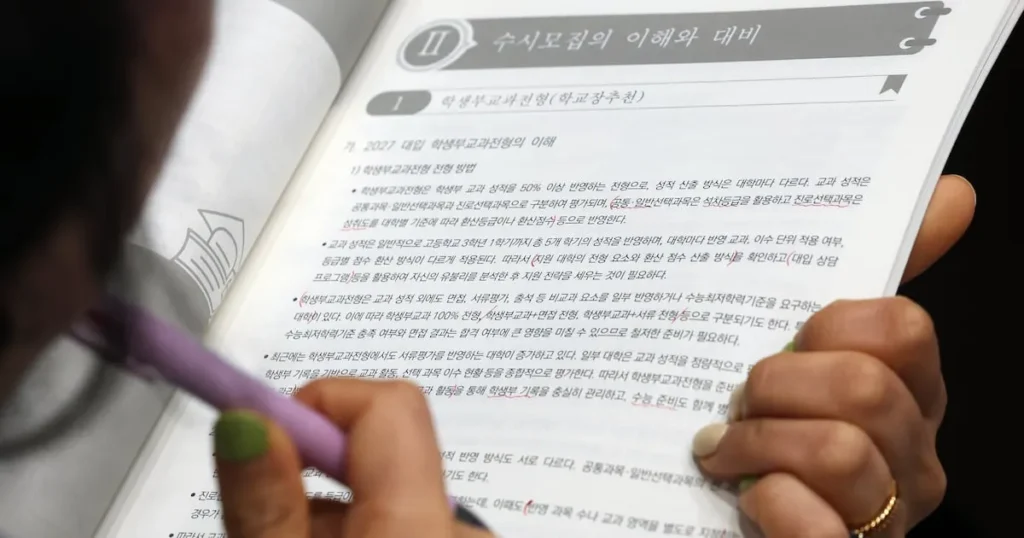 Ⅱ 수시모집의 이해와 대비
1 학생부교과전형(학교장추천)
가. 2027 대입 학생부교과전형의 이해
1) 학생부교과전형 전형 방법
• 학생부교과전형은 학생부 교과 성적을 50% 이상 반영하는 전형으로, 성적 산출 방식은 대학마다 다르다. 교과 성적은
공통과목·일반선택과목과 진로선택과목으로 구분하여 평가되며, 공통·일반선택과목은 석차등급을 활용하고 진로선택과목은
성취도를 대학별 기준에 따라 환산등급이나 환산점수 등으로 반영한다.
• 교과 성적은 일반적으로 고등학교 3학년 1학기까지 총 5개 학기의 성적을 반영하며, 대학마다 반영 교과, 이수 단위 적용 여부,
등급별 점수 환산 방식이 다르게 적용된다. 따라서 지원 대학의 전형 요소와 환산 점수 산출 방식을 확인하고 대입 상담
프로그램 등을 활용하여 자신의 유불리를 분석한 후 지원 전략을 세우는 것이 필요하다.
• 학생부교과전형은 교과 성적 외에도 면접, 서류평가, 출석 등 비교과 요소를 일부 반영하거나 수능최저학력기준을 요구하는
대학이 있다. 이에 따라 학생부교과 100% 전형, 학생부교과+면접 전형, 학생부교과+서류 전형 등으로 구분되기도 한다.
수능최저학력기준 충족 여부와 면접 결과는 합격 여부에 큰 영향을 미칠 수 있으므로 철저한 준비가 필요하다.
• 최근에는 학생부교과전형에서도 서류평가를 반영하는 대학이 증가하고 있다. 일부 대학은 교과 성적을 정량적으로
학생부 기록을 기반으로 교과 활동, 선택 과목 이수 현황 등을 종합적으로 평가한다. 따라서 학생부교과전형을
활동을 통해 학생부 기록을 충실히 관리하고, 수능 준비도 함께
반영 방식도 서로 다르다. 공통과목·일반선택과목의
기도 한다.
• 진로 도를 등급이 하는데, 이때도 반영 과목 수나 교과 영역을 별도로
경우가
• 따라서